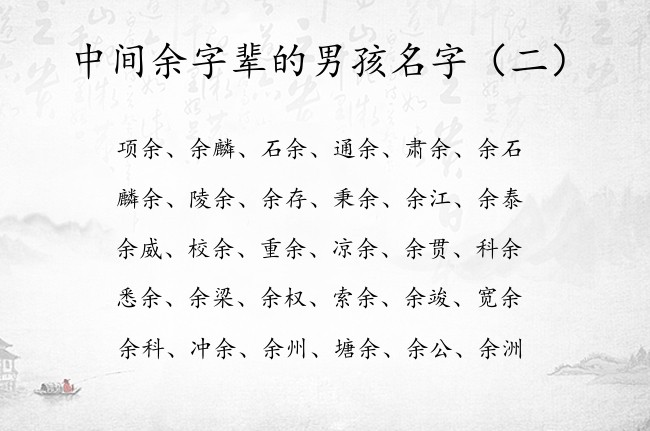 中间余字辈的男孩名字（二）
项余、余麟、石余、通余、肃余、余石
麟余、陵余、余存、秉余、余江、余泰
余威、校余、重余、凉余、余贯、科余
悉余、余梁、余权、索余、余竣、宽余
余科、冲余、余州、塘余、余公、余洲